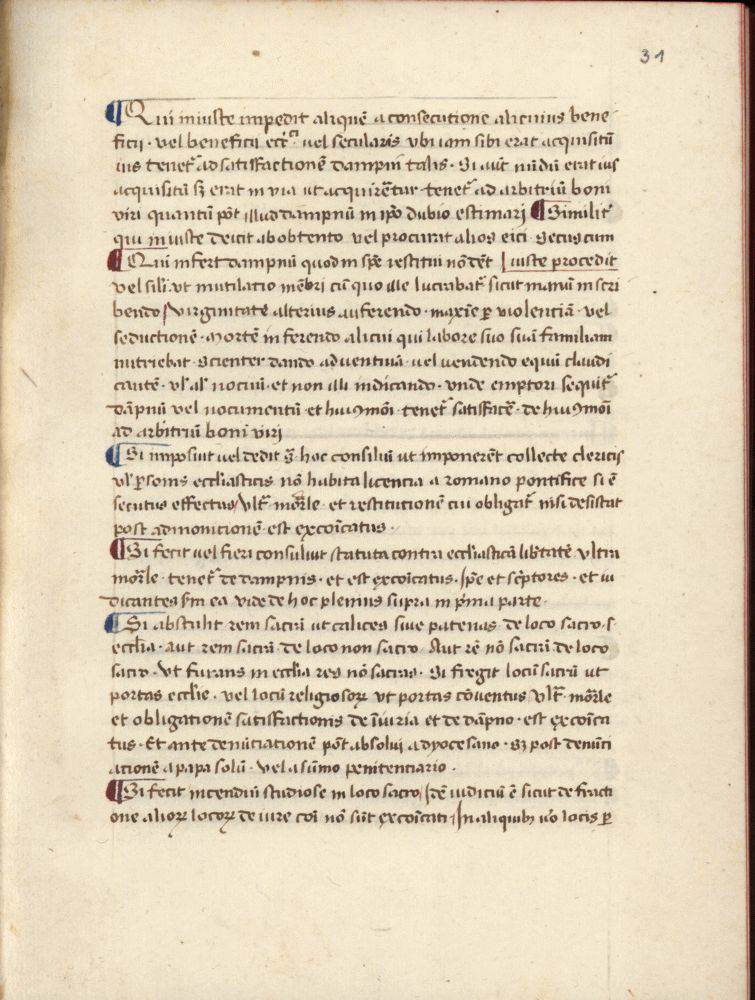 31
¶ Qui iniuste impedit aliquē a consecutione alicuius bene
ficij · vel beneficii ecc̄ci · uel secularis ubi iam sibi erat acquisitū
ius tenet᷑ ad satisfactionē dampni talis · Si aūt nūdū erat ius
acquisitū sꝫ erat in via ut acquirēetur tenet᷑ ad arbitriū boni
viri quantū pōt illud dampnū in ip̄o dubio estimari ¶ Similit᷑
qui iniuste deicit ab obtento vel procurat alios eici · Secus cum
¶ Qui infert dampnū quod in spē restitui nō dēt | iuste procedit
vel sil̄i · ut mutilatio mēbri cū quo ille lucrabat᷑ sicut manū in scri
bendo / virginitatē alterius auferendo · maxīe ꝑ violentiā · vel
seductionē · Mortē inferendo alicui qui labore suo suā familiam
nutriebat · Scienter dando ad uentinā · uel uendendo equū claudi
cantē · vl̄ al̄ nociuū · et non illi indicando · unde emptori sequit᷑
dāpnū vel nocumentū · et hui9mōi · tenet᷑ satisfacē · de hui9mōi
ad arbitriū boni viri
¶ Si imposiut uel dedit ḡ hoc consiliū ut imponerēt collecte clericis
vl̄ ꝑsonis ecclīasticis nō habita licencia a romano pontifice si ē
secutus effectus / ul̄t᷑ mor̄le · et restitucionē cui obligat᷑ nisi desistat
post admonicionē · est excōicatus ·
¶ Si fecit uel fieri consuluit statuta contra ecclīasticā lib̄tatē vltra
mor̄le · tenet᷑ de dampnis · et est excōicatus · Ip̄e et sc̄ptores · et iu
dicantes s̄m ea vide de hoc plenius supra in p̄ma parte ·
¶ Si abstulit rem sacrā ut calices siue patenas · de loco sacro · s ·
ecclīa · aut rem sacrā · de loco non sacro · Aut rē nō sacrā de loco
sacro · Ut furans in ecclīa res nō sacras · Si fregit locū sacrū ut
portas ecclīe · vel locū religiosoꝝ ut portas cōuentus vl̄t᷑ · mor̄le
et obligationē satisfactionis de īiuria et de dāpno · est excōica
tus · Et ante denūciationē pōt absolui a dyocesano · Sꝫ post denūci
acionē a papa solū · vel a sūmo penitenciario ·
¶ Si fecit incendiū studiose in loco sacro / Idē iudiciū ē sicut de fracti
one alioꝝ locoꝝ de iure cōi nō sūt excōicati / In aliquibꝫ ūo locis ꝑ